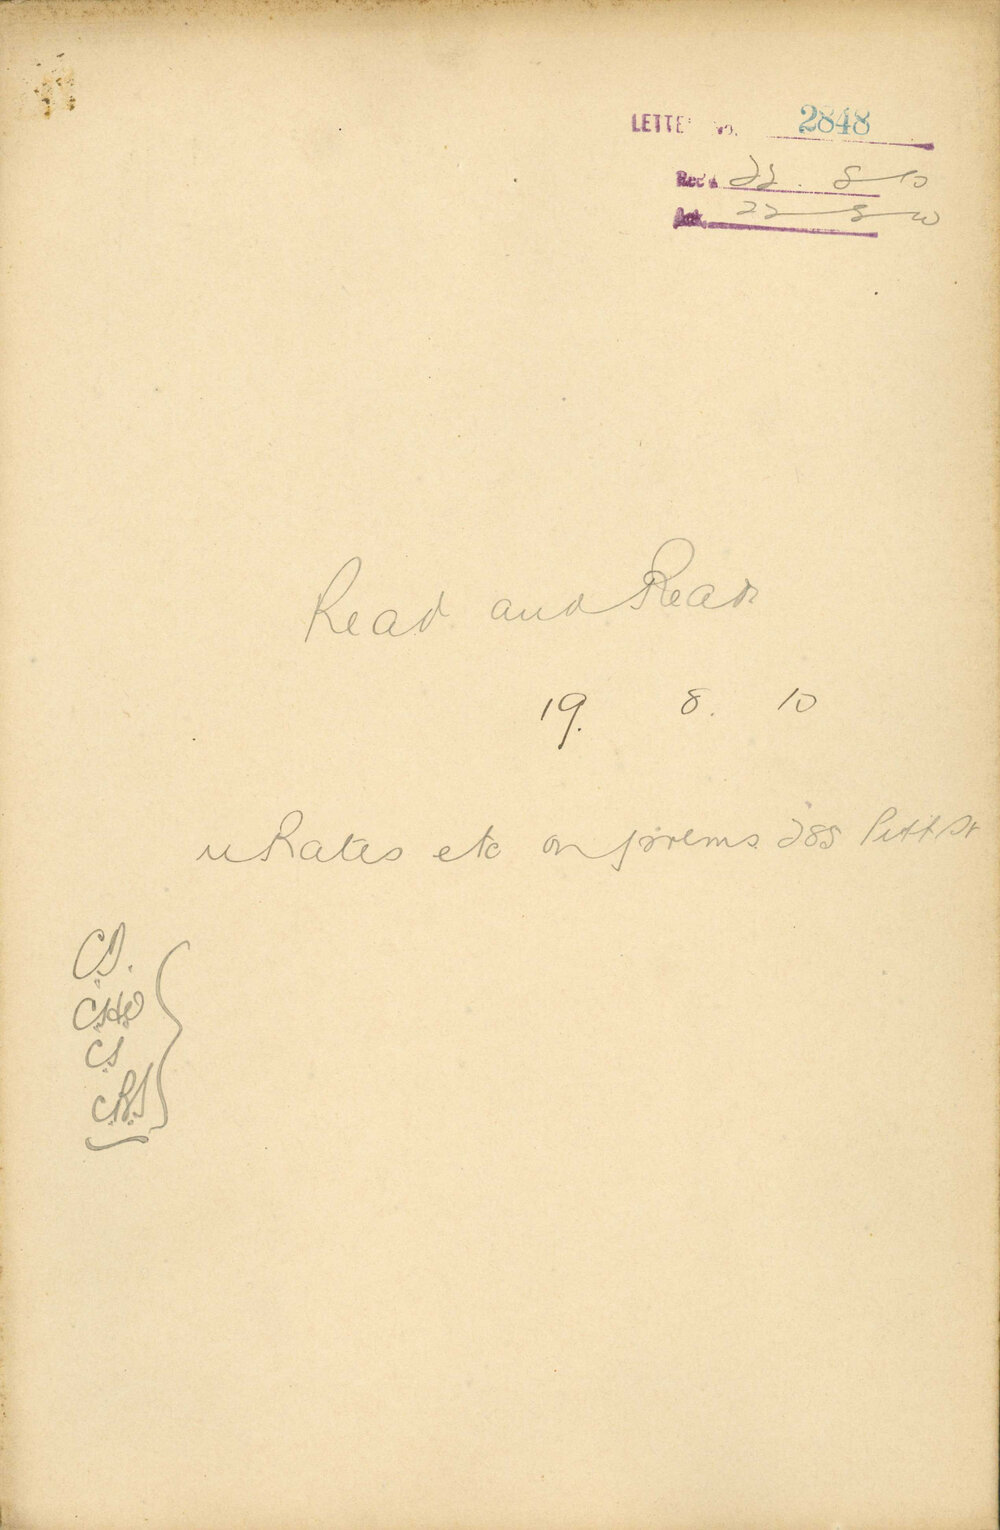 LETTE No. 2848
Rec'd 22. 8 10
Ack. 22 8 10
Read and Read
19. 8. 10
u Rates etc on prems 285 Pitt St
C.S.
C.S
C.R.S